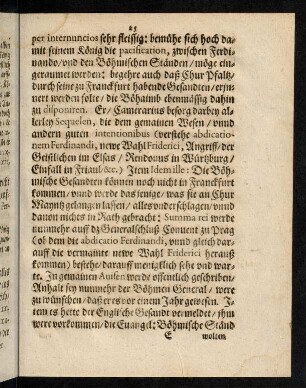 25
per internuncios sehr fleissig: bemühe sich hoch da-
mit seinem König die pacification, zwischen Ferdi-
nando/ vnd den Böhmischen Ständen/ möge ein-
geraumet werden: begehre auch daß Chur Pfaltz/
durch seine zu Franckfurt habende Gesandten/ erjn-
nert werden solte/ die Böhaimb ebenmässig dahin
zu disponiren. Er/ Camerarius besorg darbey al-
lerley Sequelen, die dem gemainen Wesen/ vnnd
andern guten intentionibus (verstehe abdicatio-
nem Ferdinandi, newe Wahl Friderici, Angriff/ der
Geistlichen im Elsas/ Rendouus in Würtzburg/
Einfall in Friaul &c.) Jtem Idem ille: Die Böh-
mische Gesandten können noch nicht in Franckfurt
kommen/ vnnd werde das jenige/ was sie an Chur
Mayntz gelangen lassen/ alles vnderschlagen/ vnnd
dauon nichts in Rath gebracht: Summa rei werde
nunmehr auff dz Generalschluß Conuent zu Prag
(ob dem die abdicatio Ferdinandi, vnnd gleich dar-
auff die vermainte newe Wahl Friderici herauß
kommen) bestehe/ darauff meniglich sehr vnd war-
te. Jn gemainen Aufsen werde offentlich geschriben/
Anhalt sey nunmehr der Böhmen General/ were
zu wünschen/ daß er es vor einem Jahr gewesen. J-
tem es hette der Englische Gesandt vermeldet/ jhm
were vorkommen/ die Euangel: Böhmische Ständ
E wollen